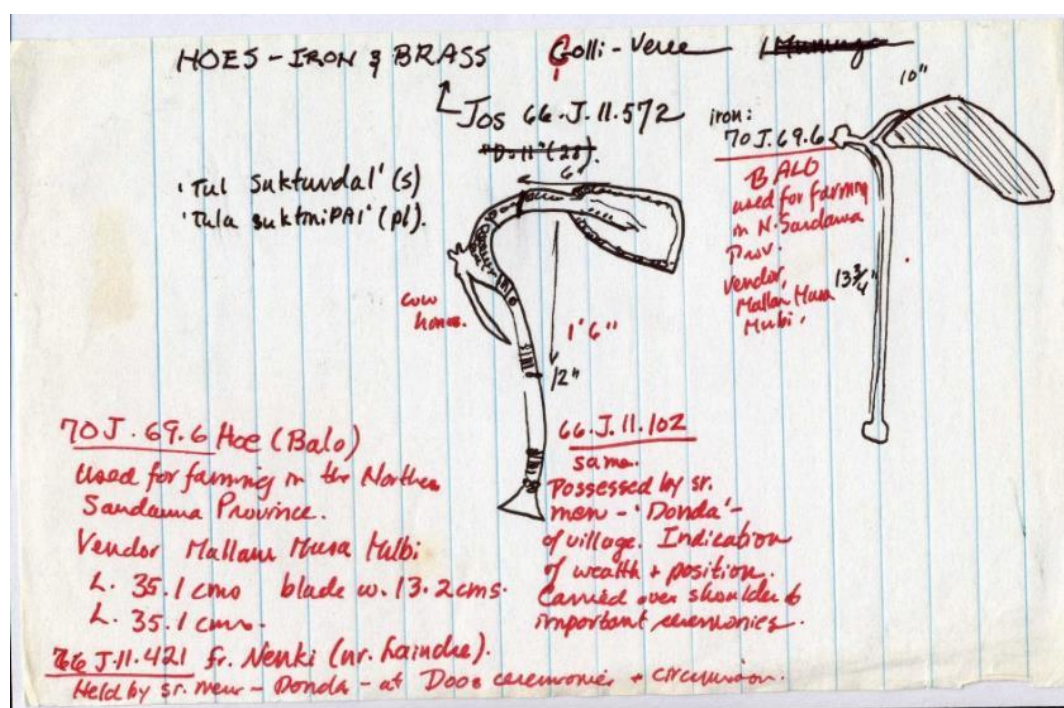 HOES - IRON & BRASS Golli - Vere Mumuye
Jos 66.J.11.572
'Tul Suktundal' (s)
'Tula suktniPAI' (pl).
6"
cow
horns.
1'6"
12"
10"
iron:
70J.69.6
BALO
used for farming
in N. Sardauna
Prov.
Vendor,
Mallam Musa
Mubi.
13 3/4"
70J.69.6 Hoe (Balo)
used for farming in the Northern
Sardauna Province.
Vendor Mallam Musa Mubi
L. 35.1 cms blade w. 13.2 cms.
L. 35.1 cms.
66.J.11.102
same.
Possessed by sr.
men - 'Donda' -
of village. Indication
of wealth + position.
Carried over shoulder to
important ceremonies.
66 J.11.421 fr. Nenki (nr. ).
Held by sr. men - Donda - at Doos ceremonies + circumcision.